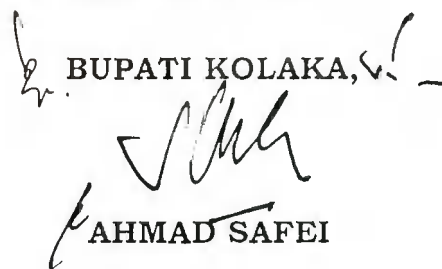 BUPATI KOLAKA,
AHMAD SAFEI